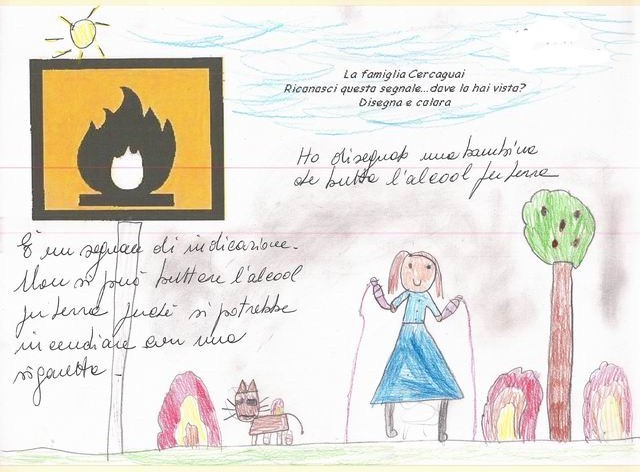 La famiglia Cercaguai
Riconosci questo segnale...dove lo hai visto?
Disegna e colora
Ho disegnato una bambina
che butta l'alcool per terra
È un segnale di indicazione.
Non si può buttare l'alcool
per terra perché si potrebbe
incendiare con una
sigaretta.